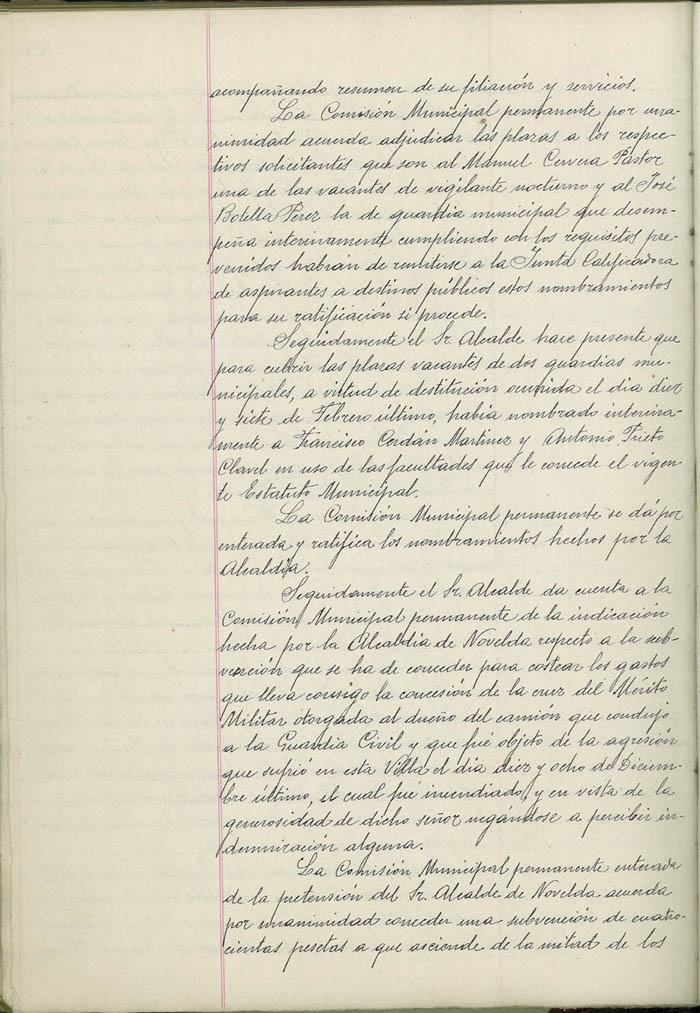 acompañando resumen de su filiación y servicios.
La Comisión Municipal permanente por una-
nimidad acuerda adjudicar las plazas a los respec-
tivos solicitantes que son al Manuel Cervera Pastor
una de las vacantes de vigilante nocturno y al José
Botella Perez la de guardia municipal que desem-
peña interinamente cumpliendo con los requisitos pre-
venidos habrán de remitirse a la Junta Calificadora
de aspirantes a destinos públicos estos nombramientos
para su ratificación si procede.
Seguidamente el Sr. Alcalde hace presente que
para cubrir las plazas vacantes de dos guardias mu-
nicipales, a virtud de destitución ocurrida el dia diez
y siete de Febrero último, había nombrado interina-
mente a Francisco Cerdán Martinez y Antonio Prieto
Clavel en uso de las facultades que le concede el vigen-
te Estatuto Municipal.
La Comisión Municipal permanente se dá por
enterada y ratifica los nombramientos hechos por la
Alcaldia.
Seguidamente el Sr. Alcalde da cuenta a la
Comisión Municipal permanente de la indicación
hecha por la Alcaldia de Novelda respecto a la sub-
vención que se ha de conceder para costear los gastos
que lleva consigo la concesión de la cruz del Mérito
Militar otorgada al dueño del camión que condujo
a la Guardia Civil y que fué objeto de la agresión
que sufrió en esta Villa el día diez y ocho de Diciem-
bre último, el cual fue incendiado, y en vista de la
generosidad de dicho señor negándose a percibir in-
demnización alguna.
La Comisión Municipal permanente enterada
de la pretensión del Sr. Alcalde de Novelda acuerda
por unanimidad conceder una subvención de cuatro-
cientas pesetas a que asciende de la mitad de los